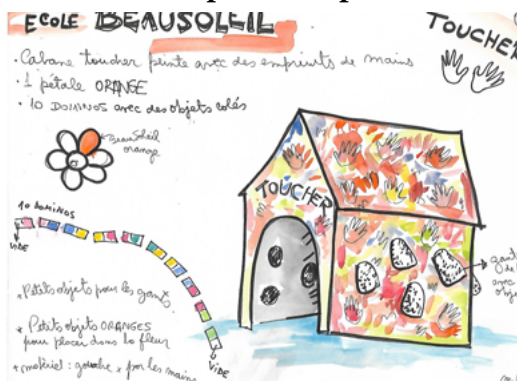 ECOLE BEAUSOLEIL
TOUCHER
• Cabane toucher peinte avec des empruits de mains
• 1 pétale ORANGE
• 10 DOMINOS avec des objets colés
BeauSoleil
orange
10 DOMINOS
VIDE
TOUCHER
* Petits objets pour les gants
* Petits objets ORANGES
pour placer dans la fleur
+ matériel : gouache x por les mains
VIDE
de
avec